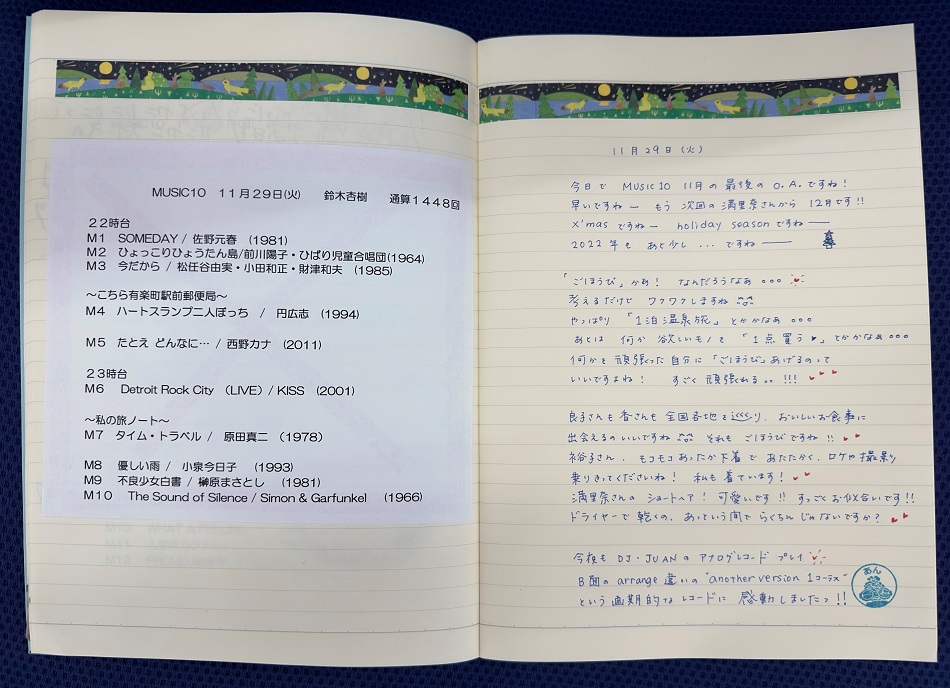 MUSIC10 11月29日(火) 鈴木杏樹 通算1448回
22時台
M1 SOMEDAY / 佐野元春 (1981)
M2 ひょっこりひょうたん島/前川陽子・ひばり児童合唱団(1964)
M3 今だから / 松任谷由実・小田和正・財津和夫 (1985)
～こちら有楽町駅前郵便局～
M4 ハートスランプ二人ぼっち / 円広志 (1994)
M5 たとえ どんなに… / 西野カナ (2011)
23時台
M6 Detroit Rock City (LIVE) / KISS (2001)
～私の旅ノート～
M7 タイム・トラベル / 原田真二 (1978)
M8 優しい雨 / 小泉今日子 (1993)
M9 不良少女白書 / 榊原まさとし (1981)
M10 The Sound of Silence / Simon & Garfunkel (1966)
11月29日(火)
今日で MUSIC10 11月の最後の O.A.ですね!
早いですねー もう 次回の満里奈さんから 12月です!!
X'mas ですねー holiday season ですねー
2022年も あと少し ... ですねー
「ごほうび」かぁ! なんだろうなぁ 。。。
考えるだけで ワクワクしますね
やっぱり 「1泊温泉旅」とかかなぁ 。。。
あとは 何か 欲しいモノを 「1点買う♥」とかかなぁ。。。
何かを 頑張った自分に「ごほうび」あげるのって
いいですよね! すごく 頑張れる 。。 !!!
良子さんも香さんも 全国各地を巡り、おいしいお食事に
出会えるのいいですね それも ごほうびですね!!
裕子さん、モコモコあったか下着で あたたかく、ロケや撮影
乗りきってくださいね! 私も着ています!
満里奈さんの ショートヘア! 可愛いです!! すっごくお似合いです!!
ドライヤーで乾くの、あっという間で らくちん じゃないですか?
今夜も DJ・JUANの アナログレコード プレイ
B面の arrange 違いの "another version 1コーラス"
という 画期的な レコードに 感動しましたっ!!
あん